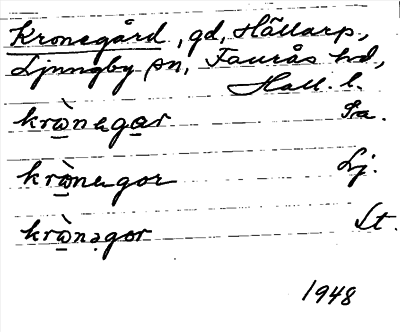 Kronegård, gd, Hällarp,
Ljungby sn, Faurås hd,
Hall. l.
krὼnagar Fa.
krὼnagor Lj.
krὼnəgor St.
1948